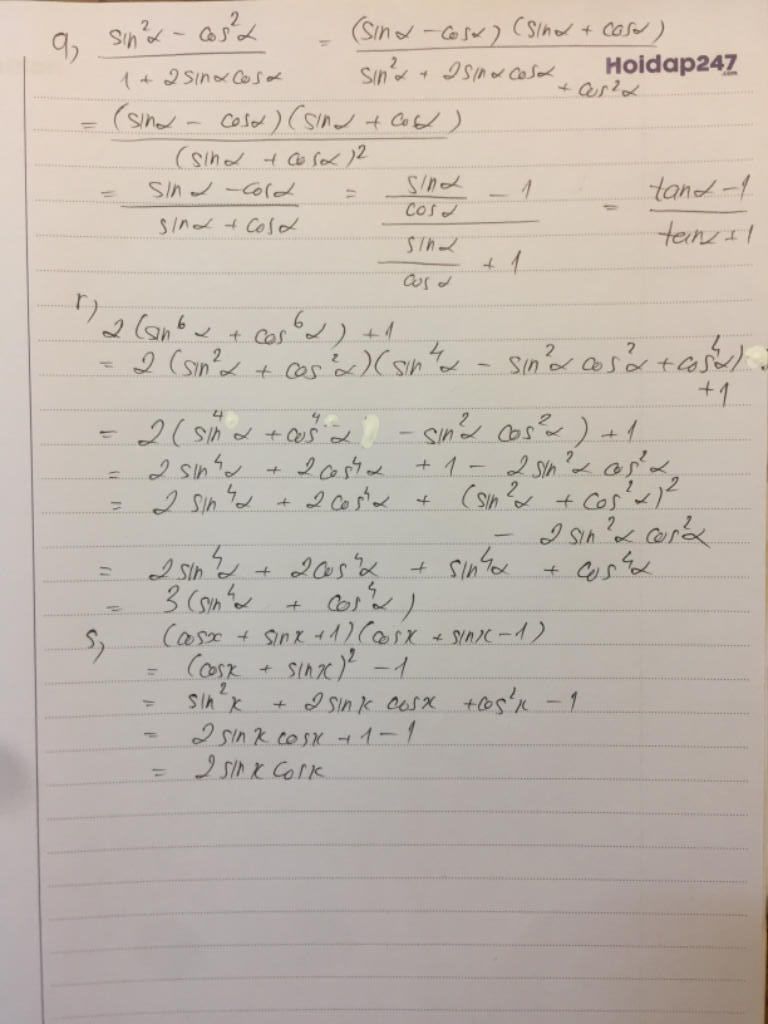 q, (sin²α - cos²α)/(1 + 2sinαcosα) = ((sinα - cosα)(sinα + cosα))/(sin²α + 2sinαcosα + cos²α)
Hoidap247.com
= ((sinα - cosα)(sinα + cosα))/((sinα + cosα)²)
= (sinα - cosα)/(sinα + cosα) = (sinα/cosα - 1)/(sinα/cosα + 1) = (tanα - 1)/(tanα + 1)
r)
2(sin⁶α + cos⁶α) + 1
= 2(sin²α + cos²α)(sin⁴α - sin²α cos²α + cos⁴α)
+ 1
= 2(sin⁴α + cos⁴α - sin²α cos²α) + 1
= 2sin⁴α + 2cos⁴α + 1 - 2sin²α cos²α
= 2sin⁴α + 2cos⁴α + (sin²α + cos²α)²
- 2sin²α cos²α
= 2sin⁴α + 2cos⁴α + sin⁴α + cos⁴α
= 3(sin⁴α + cos⁴α)
s, (cosx + sinx + 1)(cosx + sinx - 1)
= (cosx + sinx)² - 1
= sin²x + 2sinx cosx + cos²x - 1
= 2sinx cosx + 1 - 1
= 2sinx cosx